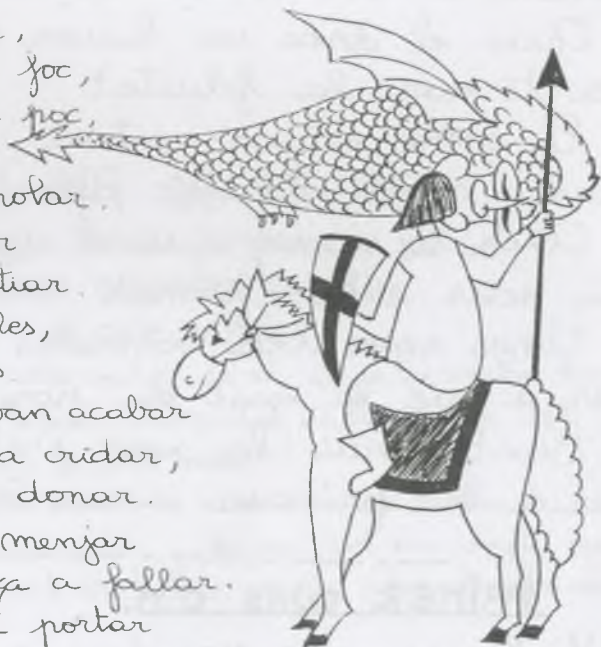 foc,
poc,
tiar
les,
van acabar
a cridar,
donar
menjar
ça a fallar.
portar